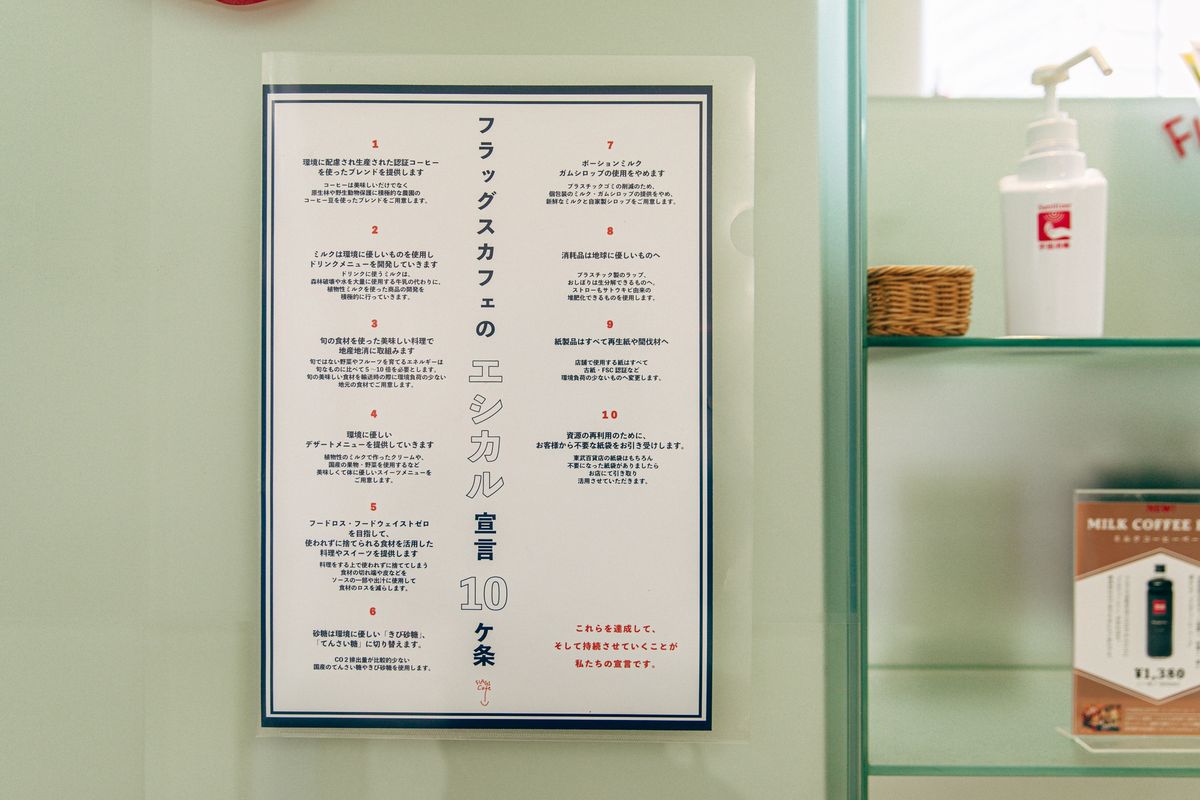 フラッグスカフェのエシカル宣言10ケ条
1
環境に配慮され生産された認証コーヒー
を使ったブレンドを提供します
コーヒーは美味しいだけでなく
原生林や野生動物保護に積極的な農園の
コーヒー豆を使ったブレンドをご用意します。
2
ミルクは環境に優しいものを使用し
ドリンクメニューを開発していきます
ドリンクに使うミルクは、
森林破壊や水を大量に使用する牛乳の代わりに、
植物性ミルクを使った商品の開発を
積極的に行っていきます。
3
旬の食材を使った美味しい料理で
地産地消に取組みます
旬ではない野菜やフルーツを育てるエネルギーは
旬なものに比べて5〜10倍を必要とします。
旬の美味しい食材を輸送時の際に環境負荷の少ない
地元の食材でご用意します。
4
環境に優しい
デザートメニューを提供していきます
植物性のミルクで作ったクリームや、
国産の果物・野菜を使用するなど
美味しくて体に優しいスイーツメニューを
ご用意します。
5
フードロス・フードウェイストゼロ
を目指して、
使わずに捨てられる食材を活用した
料理やスイーツを提供します
料理をする上で使わずに捨ててしまう
食材の切れ端や皮などを
ソースの一部や出汁に使用して
食材のロスを減らします。
6
砂糖は環境に優しい「きび砂糖」、
「てんさい糖」に切り替えます。
CO2排出量が比較的少ない
国産のてんさい糖やきび砂糖を使用します。
7
ポーションミルク
ガムシロップの使用をやめます
プラスチックゴミの削減のため、
個包装のミルク・ガムシロップの提供をやめ、
新鮮なミルクと自家製シロップをご用意します。
8
消耗品は地球に優しいものへ
プラスチック製のラップ、
おしぼりは生分解できるものへ、
ストローもサトウキビ由来の
堆肥化できるものを使用します。
9
紙製品はすべて再生紙や間伐材へ
店舗で使用する紙はすべて
古紙・FSC認証など
環境負荷の少ないものへ変更します。
10
資源の再利用のために、
お客様から不要な紙袋をお引き受けします。
東武百貨店の紙袋はもちろん
不要になった紙袋がありましたら
お店にて引き取り
活用させていただきます。
これらを達成して、
そして持続させていくことが
私たちの宣言です。
FLAGS
Cafe
MILK COFFEE
¥1,380